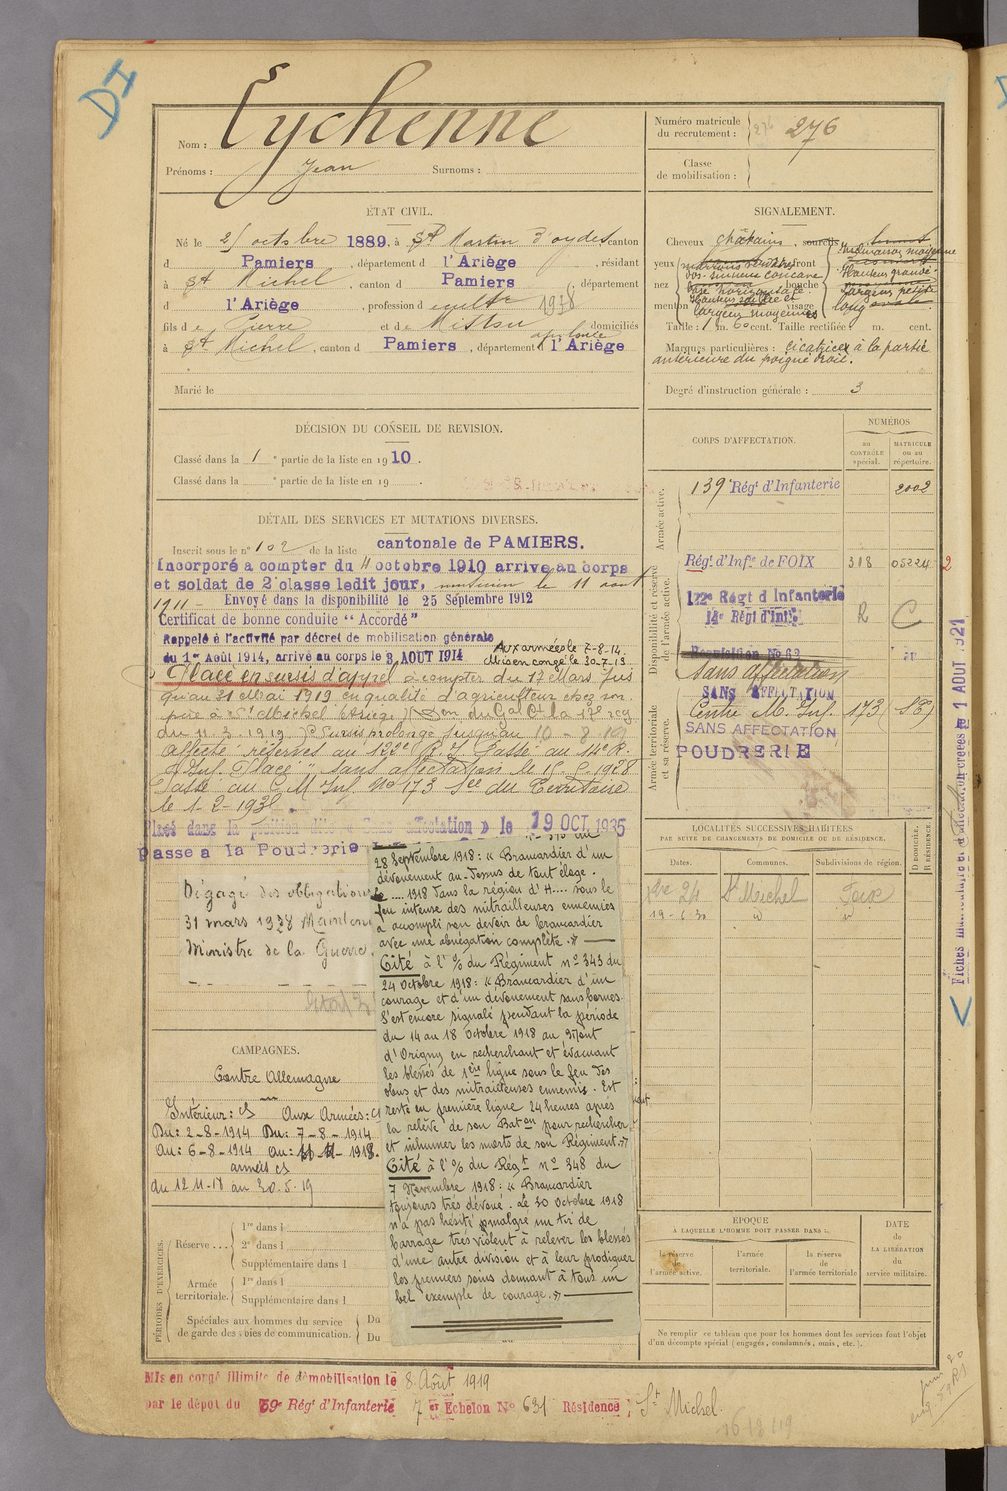 DI
Nom : Eychenne
Prénoms : Jean Surnoms :
Numéro matricule
du recrutement : 276
Classe
de mobilisation :
ÉTAT CIVIL.
Né le 21 octobre 1889, à St Martin d'oydes canton
d Pamiers, département d l'Ariège, résidant
à St Michel, canton d Pamiers, département
d l'Ariège, profession d cultr
fils d e Pierre et d e Misson domiciliés
à St Michel, canton d Pamiers, département d l'Ariège
Marié le
SIGNALEMENT.
Cheveux châtains, sourcils
yeux front
nez bouche
menton visage
Taille : 1 m. 60 cent. Taille rectifiée : m. cent.
Marques particulières : cicatrices à la partie
antérieure du poignet droit.
Degré d'instruction générale : 3
DÉCISION DU CONSEIL DE REVISION.
Classé dans la 1e partie de la liste en 1910.
Classé dans la e partie de la liste en 19 .
CORPS D'AFFECTATION.
NUMÉROS
AU CONTROLE spécial.
MATRICULE ou au répertoire.
Armée active.
139e Régt d'Infanterie 2002
Disponibilité et réserve de l'armée active.
Régt d'Infie de FOIX 318 05224 2
122e Régt d'Infanterie
14e Régt d'Infie R C
Requisition No 62
Armée territoriale et sa réserve.
Sans affectation
SANS AFFECTATION
Centre M. Inf. 173
SANS AFFECTATION
POUDRERIE
DÉTAIL DES SERVICES ET MUTATIONS DIVERSES.
Inscrit sous le n° 102 de la liste cantonale de PAMIERS.
Incorporé à compter du 4 octobre 1910 arrivé au corps
et soldat de 2e classe ledit jour, musicien le 11 août
1911 - Envoyé dans la disponibilité le 25 Septembre 1912
Certificat de bonne conduite "Accordé"
Rappelé à l'activité par décret de mobilisation générale
du 1er Août 1914, arrivé au corps le 3 AOUT 1914
Aux armées le 7-8-14.
Mis en congé le 30-7-19
Placé en sursis d'appel à compter du 17 Mars jus
qu'au 31 Mai 1919 en qualité d'agriculteur chez son
père à St Michel (Ariège) (Don du Gal Ct la 17e rég
du 11.3.1919. Sursis prolongé jusqu'au 10 - 8 -
Affecté réserves au 122e R.I. Passé au 14e R.
d'Inf. Placé "sans affectation le 15 1928
Passé au C M Inf No 173 Son du Territoire
le 1-2-193
Placé dans la position dite « Sans affectation » le 19 OCT. 1935
Passé à la Poudrerie
Dégagé des obligations
31 mars 1938 Maintenu
Ministre de la Guerre.
28 Septembre 1918 : « Brancardier d'un
dévouement au-dessus de tout éloge.
Le .... 1918 dans la région d'H.... sous le
feu intense des mitrailleuses ennemies
a accompli son devoir de brancardier
avec une abnégation complète. »
Cité à l'O/ du Régiment no 343 du
24 Octobre 1918 : « Brancardier d'un
courage et d'un dévouement sans bornes.
S'est encore signalé pendant la période
du 14 au 18 Octobre 1918 au Mont
d'Origny en recherchant et évacuant
les blessés de 1ère ligne sous le feu des
obus et des mitrailleuses ennemis. Est
resté en première ligne 24 heures après
la relève de son Baton pour rechercher
et inhumer les morts de son Régiment. »
Cité à l'O/ du Régt no 348 du
7 Novembre 1918 : « Brancardier
toujours très dévoué. Le 30 Octobre 1918
n'a pas hésité malgré un tir de
barrage très violent à relever les blessés
d'une autre division et à leur prodiguer
les premiers soins donnant à tous un
bel exemple de courage. »
CAMPAGNES.
Contre Allemagne
Intérieur : CS Aux Armées :
Du : 2-8-1914 Du : 7-8-1914
Au : 6-8-1914 Au : 11-11-1918.
armées CS
du 12 11-18 au 30.5.19
PÉRIODES D'EXERCICES.
Réserve ... 1re dans l
2e dans l
Supplémentaire dans l
Armée territoriale. 1re dans l
Supplémentaire dans l
Spéciales aux hommes du service
de garde des voies de communication.
Du
Du
LOCALITÉS SUCCESSIVES HABITÉES
PAR SUITE DE CHANGEMENTS DE DOMICILE OU DE RÉSIDENCE.
Dates. Communes. Subdivisions de région.
D DOMICILE. R RÉSIDENCE.
24 St Michel Foix
19-6-30
EPOQUE
À LAQUELLE L'HOMME DOIT PASSER DANS :
la réserve de l'armée active.
l'armée territoriale.
la réserve de l'armée territoriale
DATE
de
LA LIBÉRATION
du
service militaire.
Ne remplir ce tableau que pour les hommes dont les services font l'objet
d'un décompte spécial (engagés, condamnés, omis, etc.).
1 AOUT 1921
Mis en congé illimité de démobilisation le 8 Août 1919
par le dépôt du 59e Régt d'Infanterie 7 er Echelon No 631 Résidence St Michel.